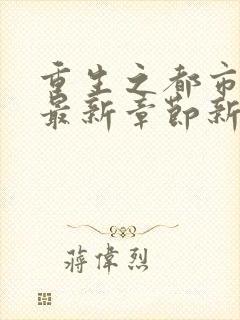 重生之都市
最新章節新
蔣偉烈